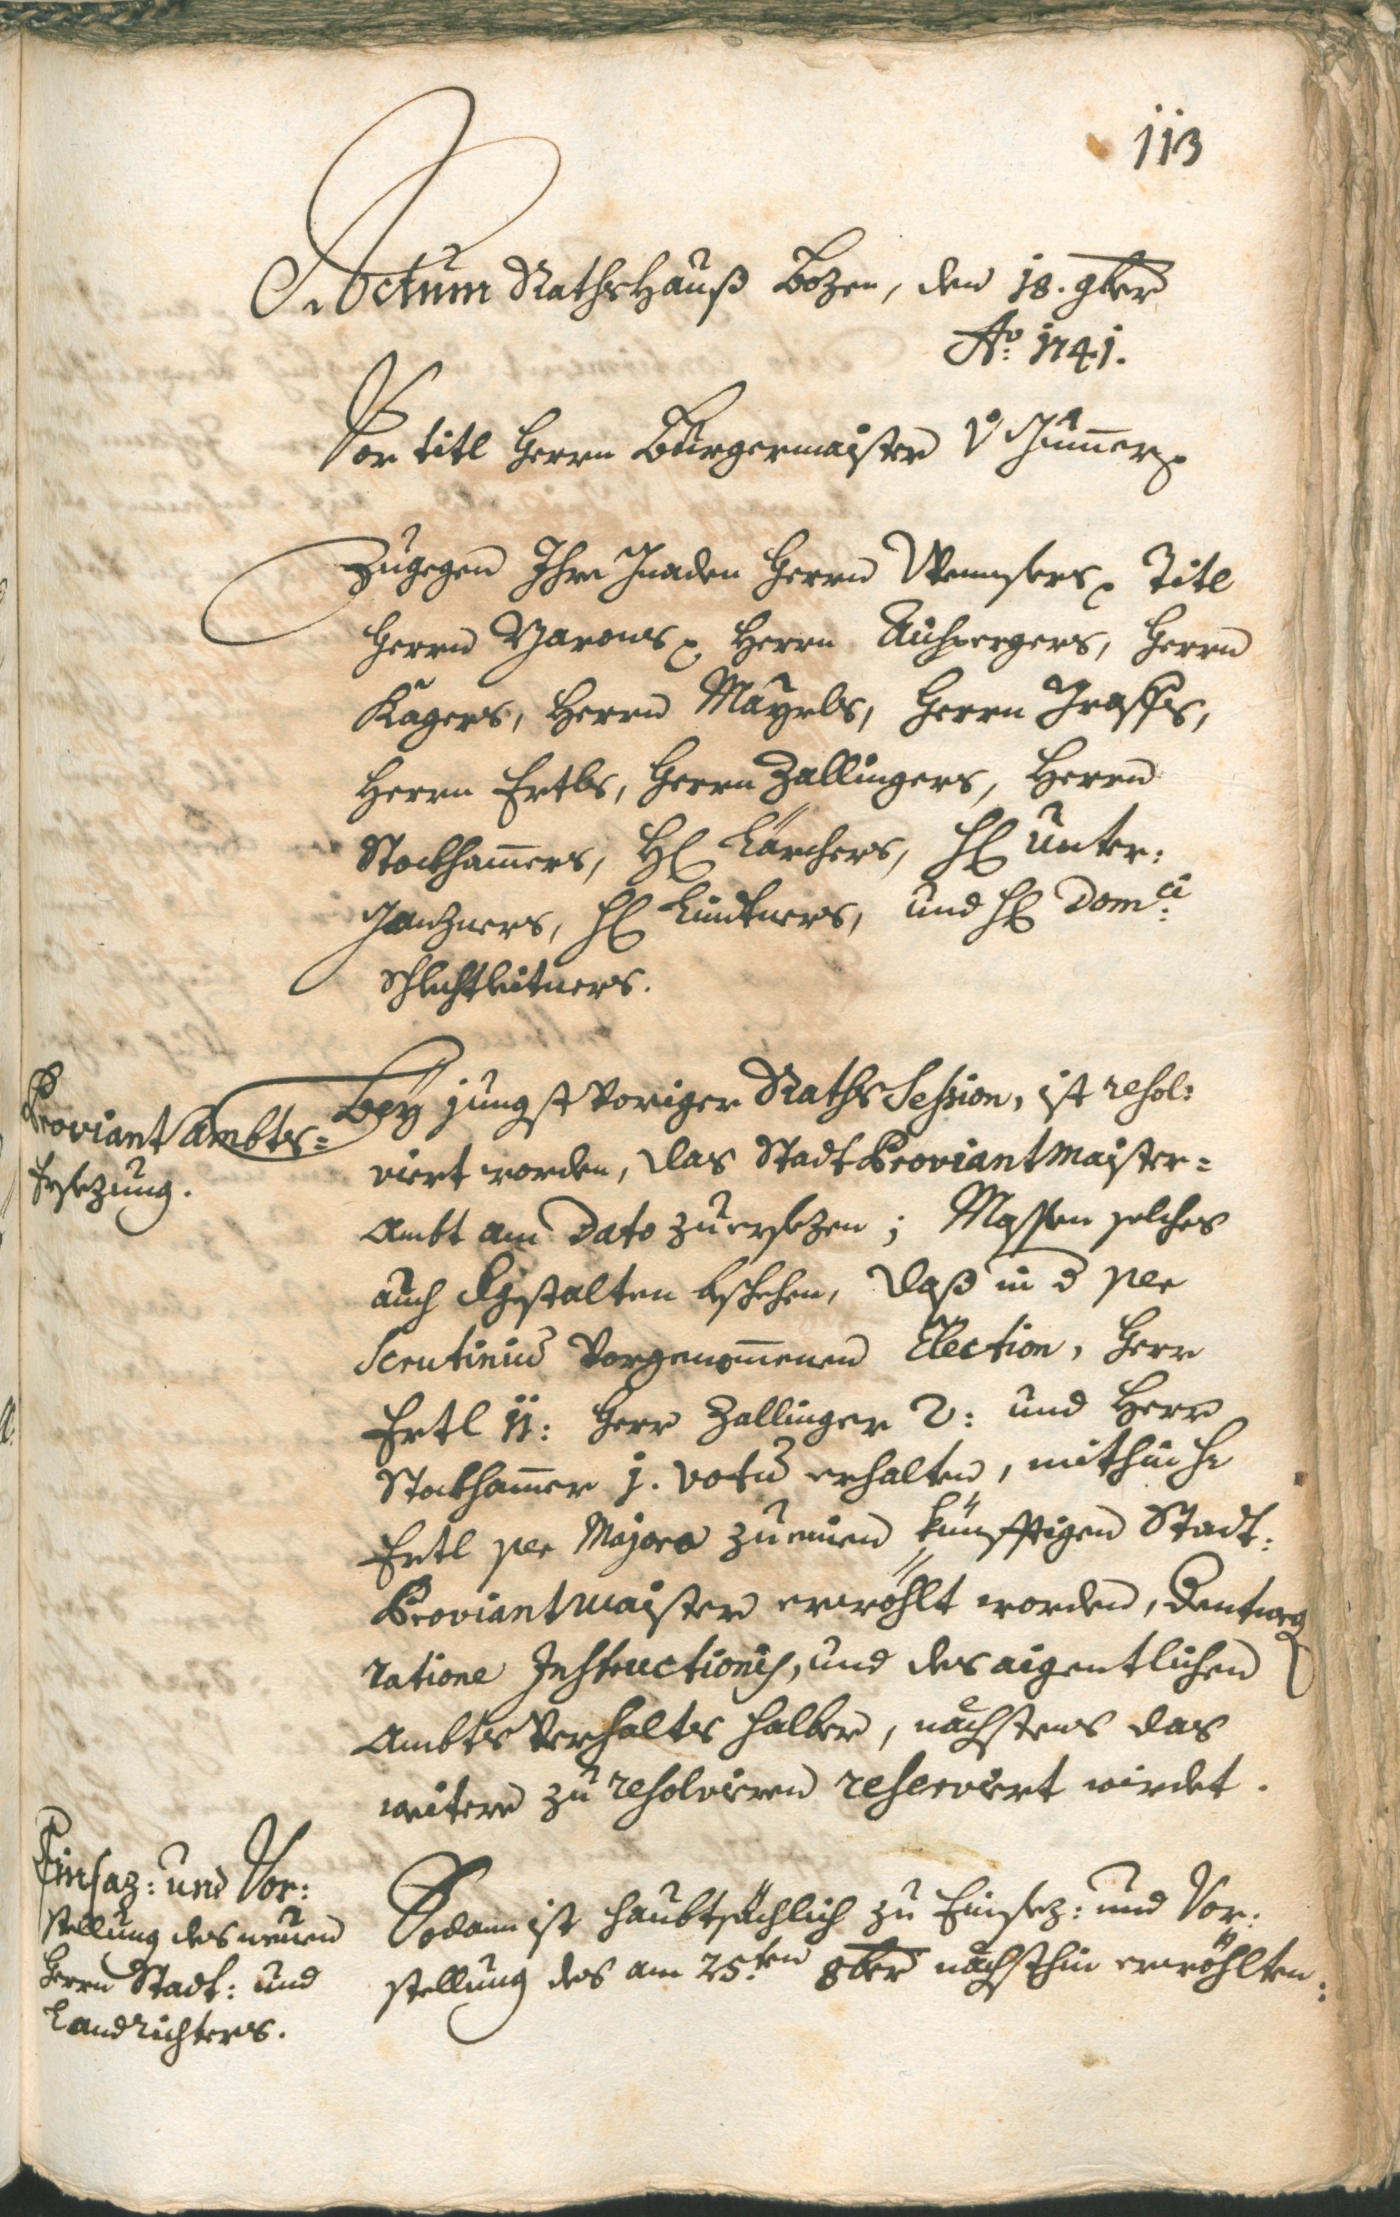 113
Actum Rathshauß Bozen, den 18. 9ber
Ao: 1741.
Vor titl Herrn Burgermaister v Gumer
Zugegen Ihro Gnaden Herrn Titl
Herrn Herrn Aufpergers, Herrn
Kagers, Herrn Mayrls, Herrn Graffs,
Herrn Ertls, Herrn Zallingers, Herrn
Stockhamers, H Lärchers, H Unter:
H Lindtners, und H Domci:
Schlechtleitners.
Proviant Ambts=
Ersezung.
Bey jungst voriger Raths Session, ist resol:
viert worden, das Stadt Proviantmaister=
Ambt am Dato zu ersezen; Massen solches
auch dergstalten beschehen, daß in d per
Scrutiniu vorgenomenen Election, Herr
Ertl 11: Herr Zallinger 2: und Herr
Stockhamer 1. votu erhalten, mithin Hr
Ertl per Majora zu einen künfftigen Stadt:
Proviantmaister erwöhlt worden, dentweg
ratione Instructionis, und des aigentlichen
Ambts Verhalts halber, nächstens das
weitere zu resolvieren reserviert wirdet.
Einsaz: und Vor:
stellung des neuen
Herrn Stadt: und
Landrichters.
Sodann ist haubtsächlich zu Einsez: und Vor:
stellung des am 25ten 8ber nächsthin erwöhlten: